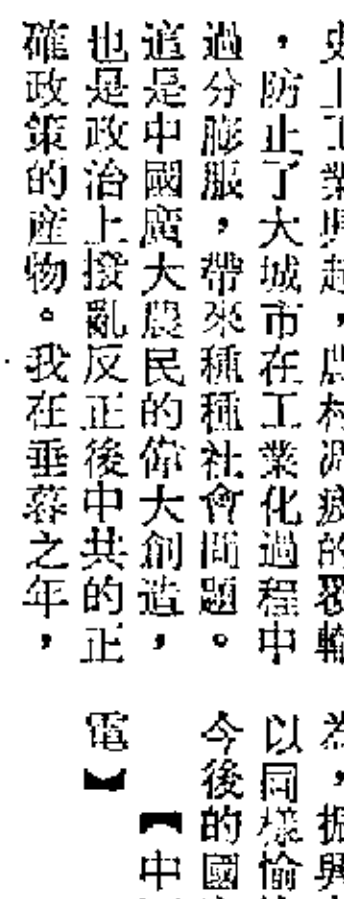 史上工業興起,農村凋疲的覆
,防止了大城市在工業化過程中
過分膨服,帶來種種社會問題。
這是中國廣大農民的偉大創造,
也是政治上撥亂反正後中共的正
確政策的產物。我在垂暮之年,
為,振興
以同樣愉
今後的國
【中
電】